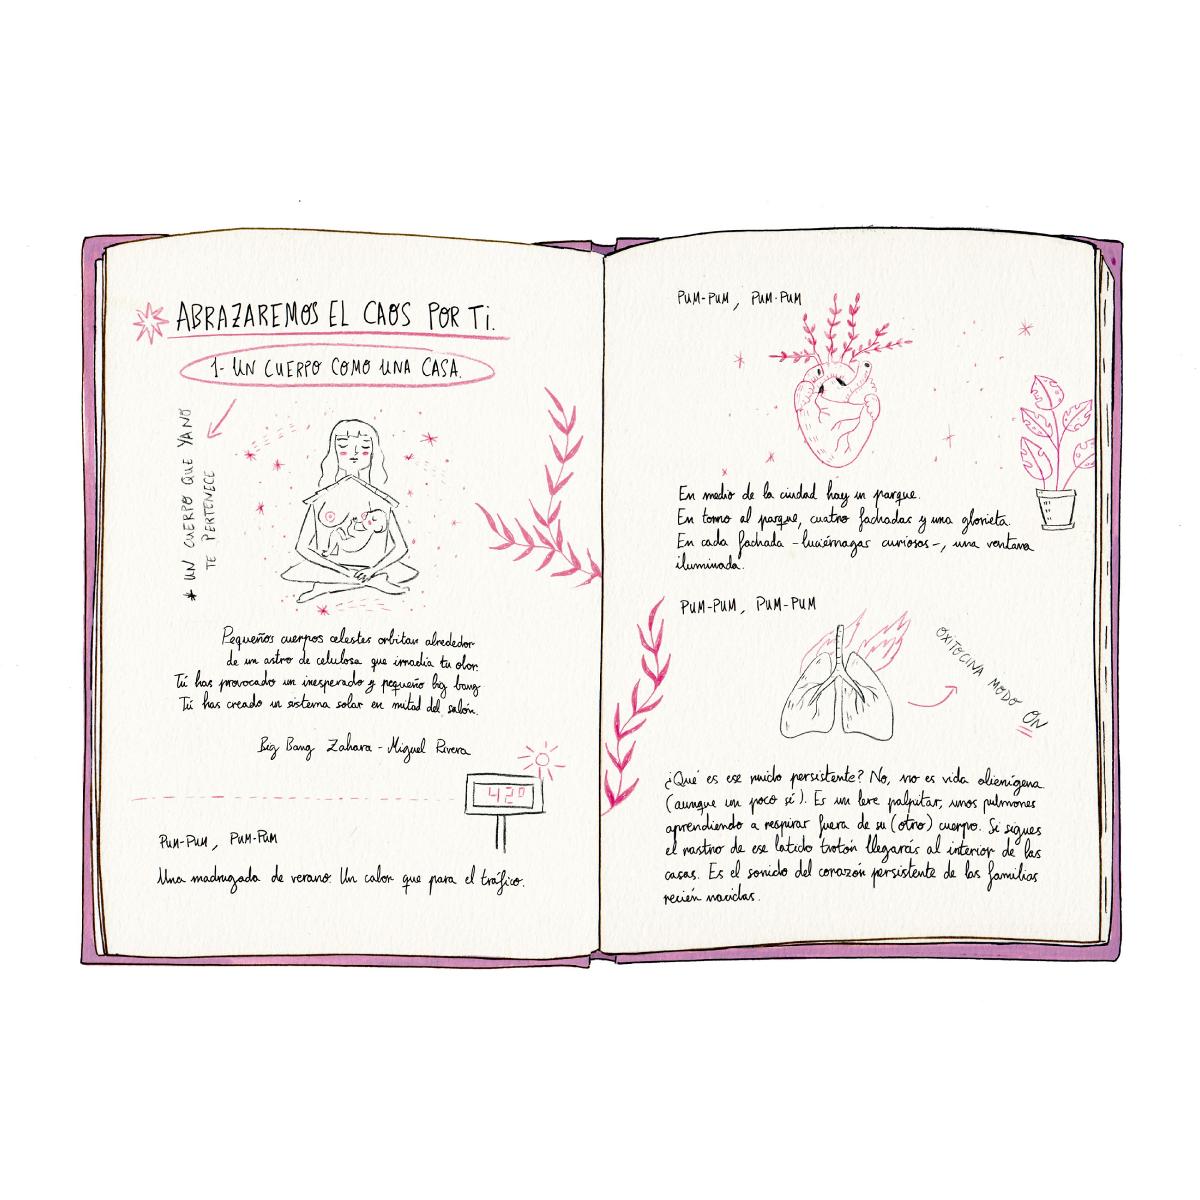 ABRAZAREMOS EL CAOS POR TI.
1- UN CUERPO COMO UNA CASA.
* UN CUERPO QUE YA NO
TE PERTENECE
Pequeños cuerpos celestes orbitan alrededor
de un astro de celulosa que irradia tu olor.
Tú has provocado un inesperado y pequeño big bang
Tú has creado un sistema solar en mitad del salón.
Big Bang Zahara - Miguel Rivera
42º
PUM-PUM, PUM-PUM
Una madrugada de verano. Un calor que para el tráfico.
PUM-PUM, PUM-PUM
En medio de la ciudad hay un parque.
En torno al parque, cuatro fachadas y una glorieta.
En cada fachada -luciérnagas curiosas-, una ventana
iluminada.
PUM-PUM, PUM-PUM
OXITOCINA MODO ON
¿Qué es ese ruido persistente? No, no es vida alienígena
(aunque un poco sí). Es un leve palpitar, unos pulmones
aprendiendo a respirar fuera de su (otro) cuerpo. Si sigues
el rastro de ese latido trotón llegarás al interior de las
casas. Es el sonido del corazón persistente de las familias
recién nacidas.